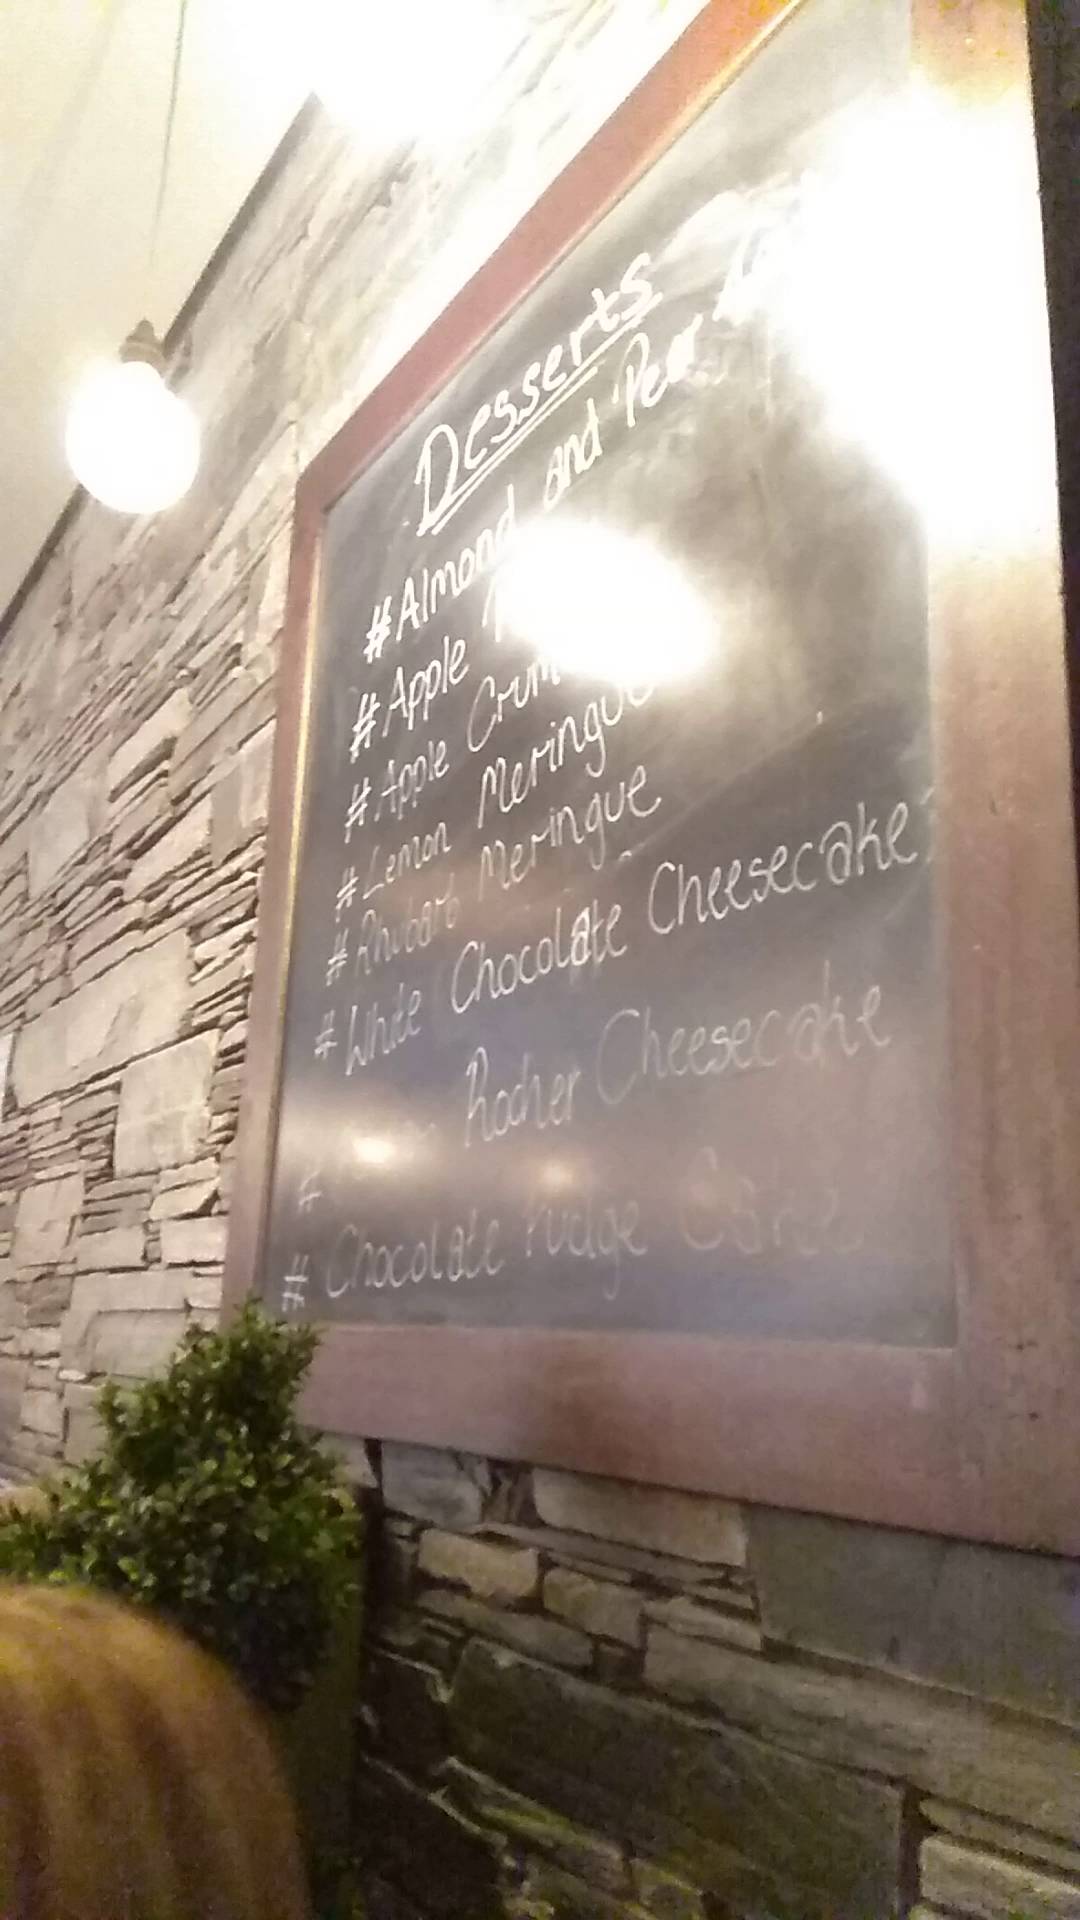 Desserts
#Almond and Pear
#Apple
#Apple
#Lemon Meringue
#Rhubarb Meringue
#White Chocolate Cheesecake
# Rocher Cheesecake
# Chocolate Fudge Cake